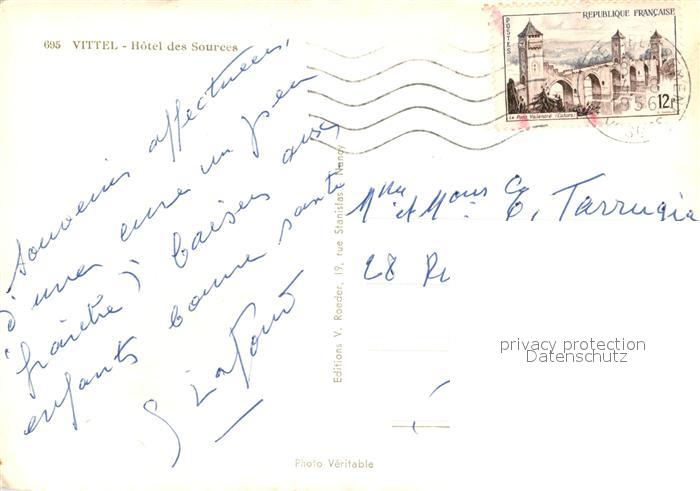 695 VITTEL - Hôtel des Sources
Souvenirs affectueux,
d'une cure un peu
fraîche ; baisers aux
enfants bonne santé
G Lafont
Editions V. Roeder, 19, rue Stanislas - Nancy
Photo Véritable
POSTES
REPUBLIQUE FRANÇAISE
12F
Le Pont Valentré (Cahors)
1956
Mme et Mons E. Tarrugia
28 R
privacy protection
Datenschutz